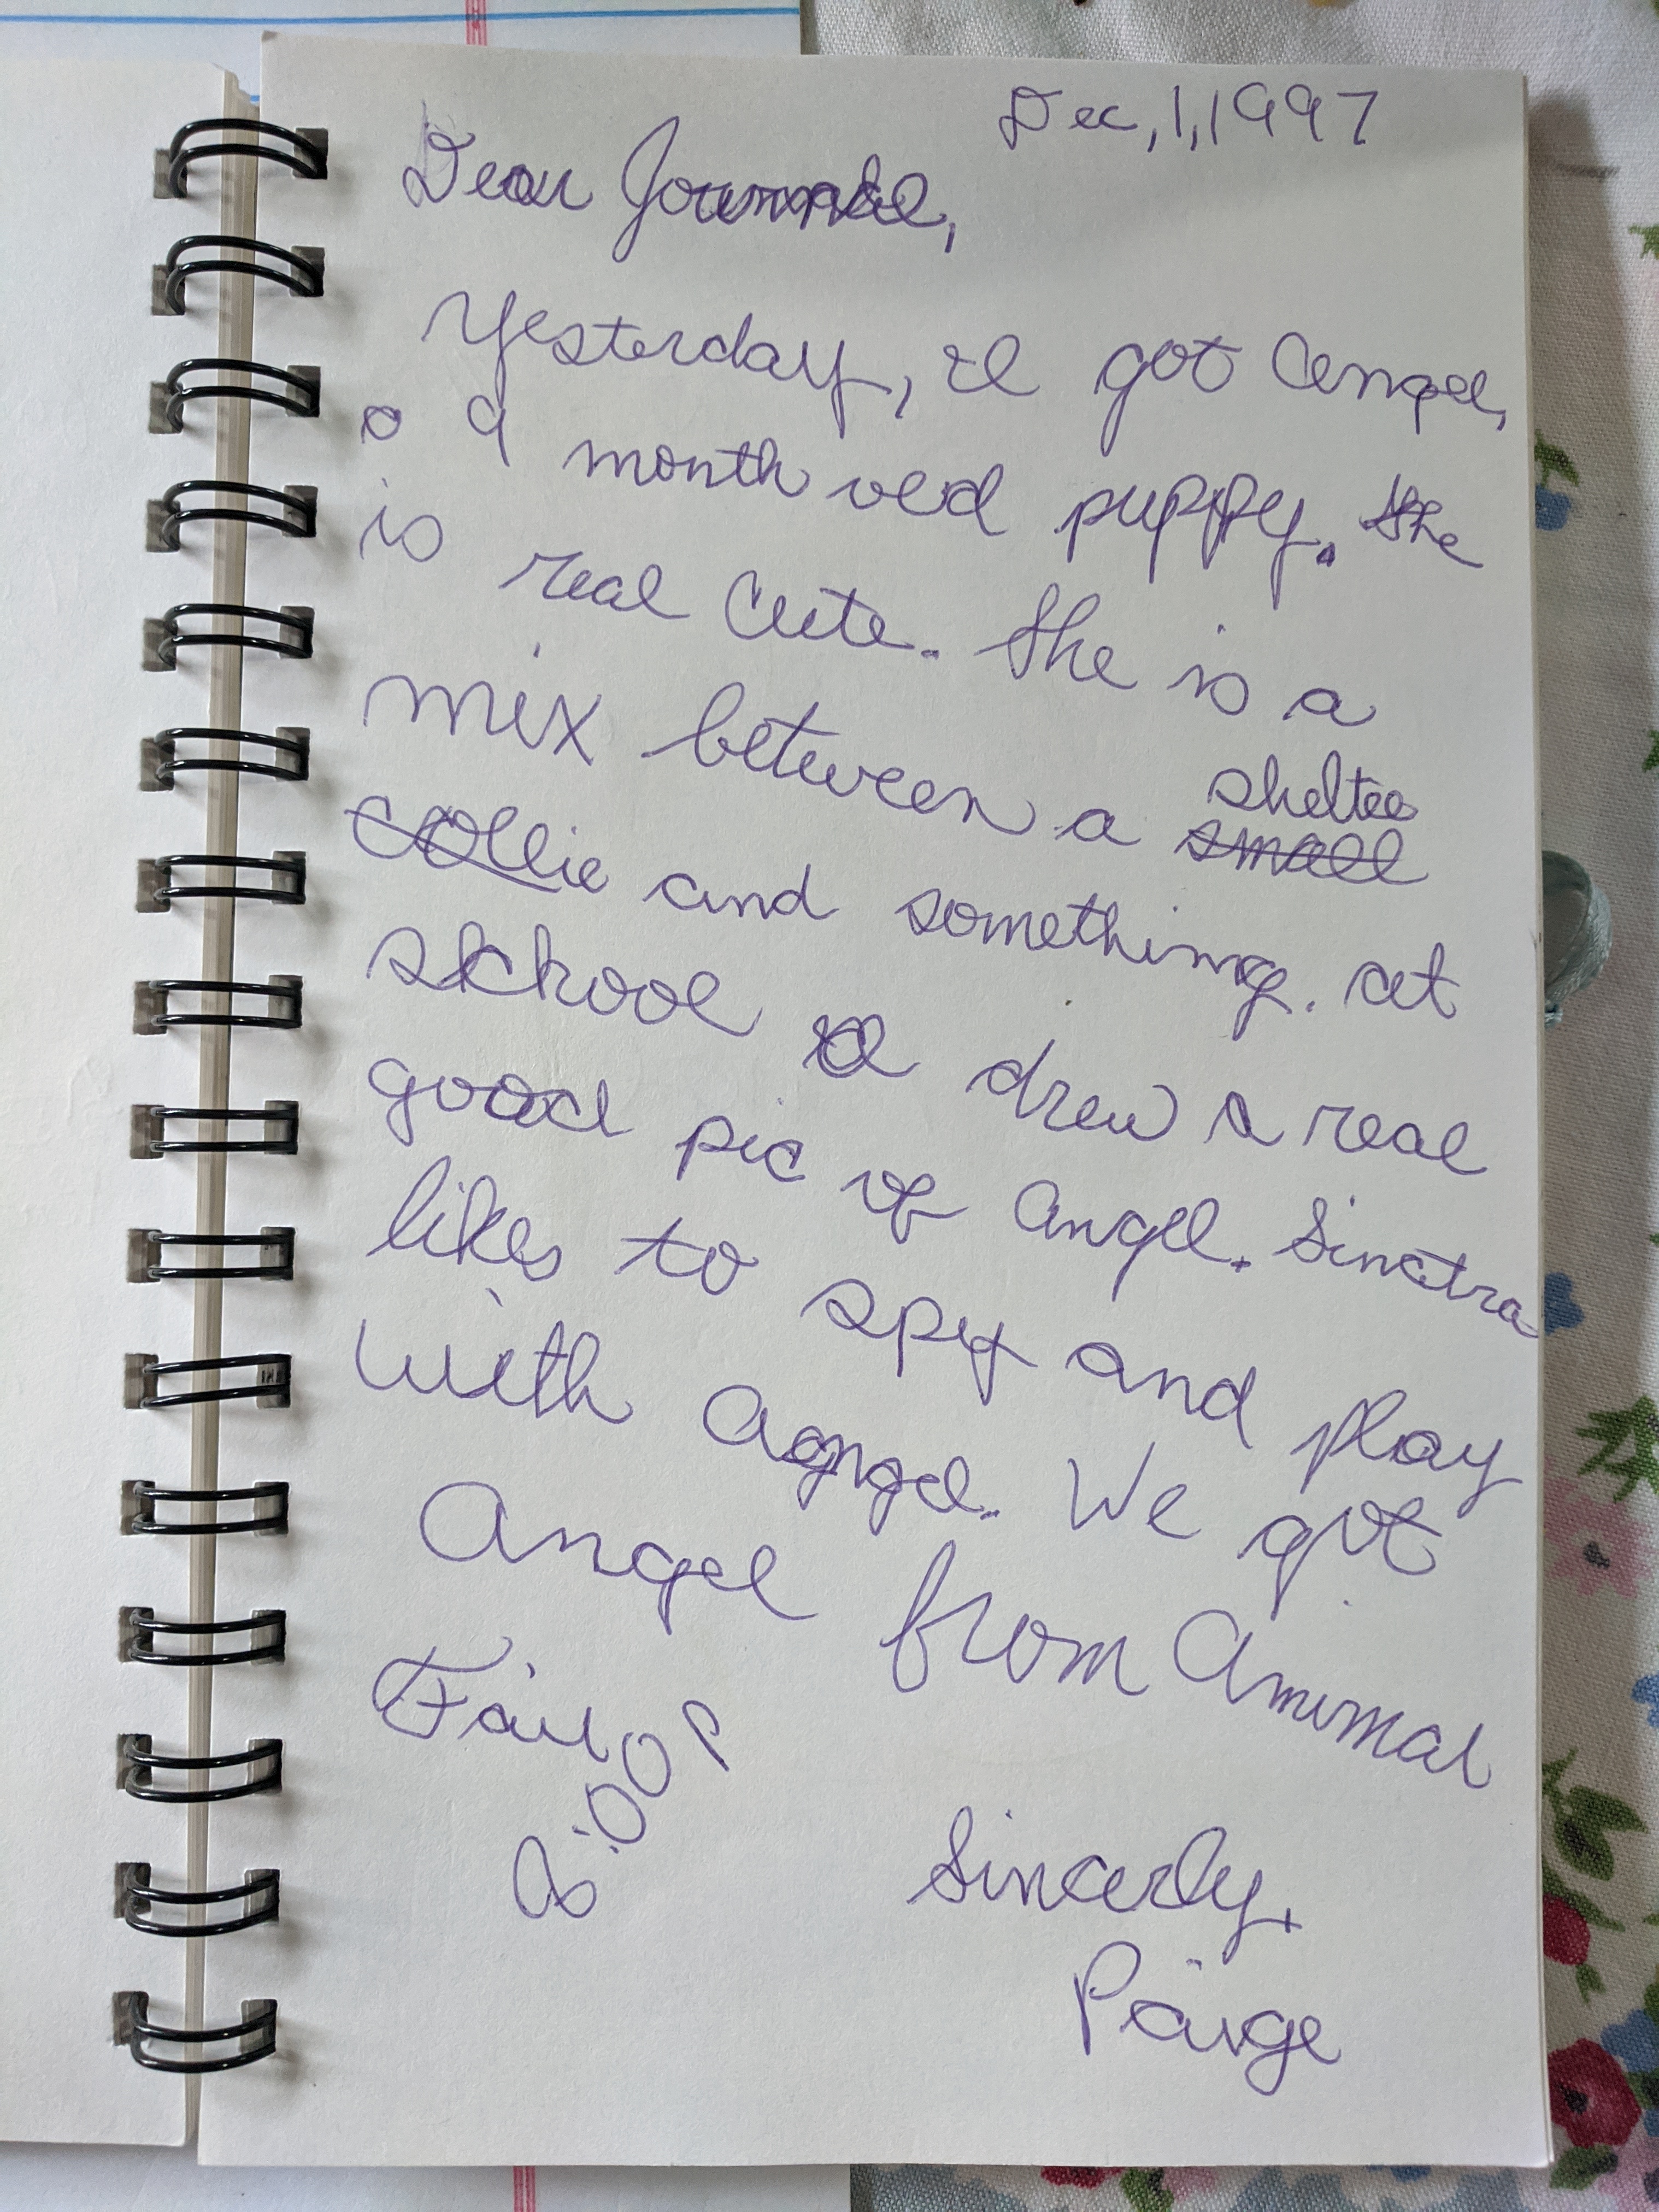 Dec, 1, 1997
Dear Journal,
Yesterday, I got Angel,
a 9 month old puppy. She
is real cute. She is a
mix between a small sheltee
collie and something. At
school I drew a real
good pic of Angel. Sinctra
likes to spy and play
with Angel. We got
Angel from Animal
Fair
Sincerly,
Paige